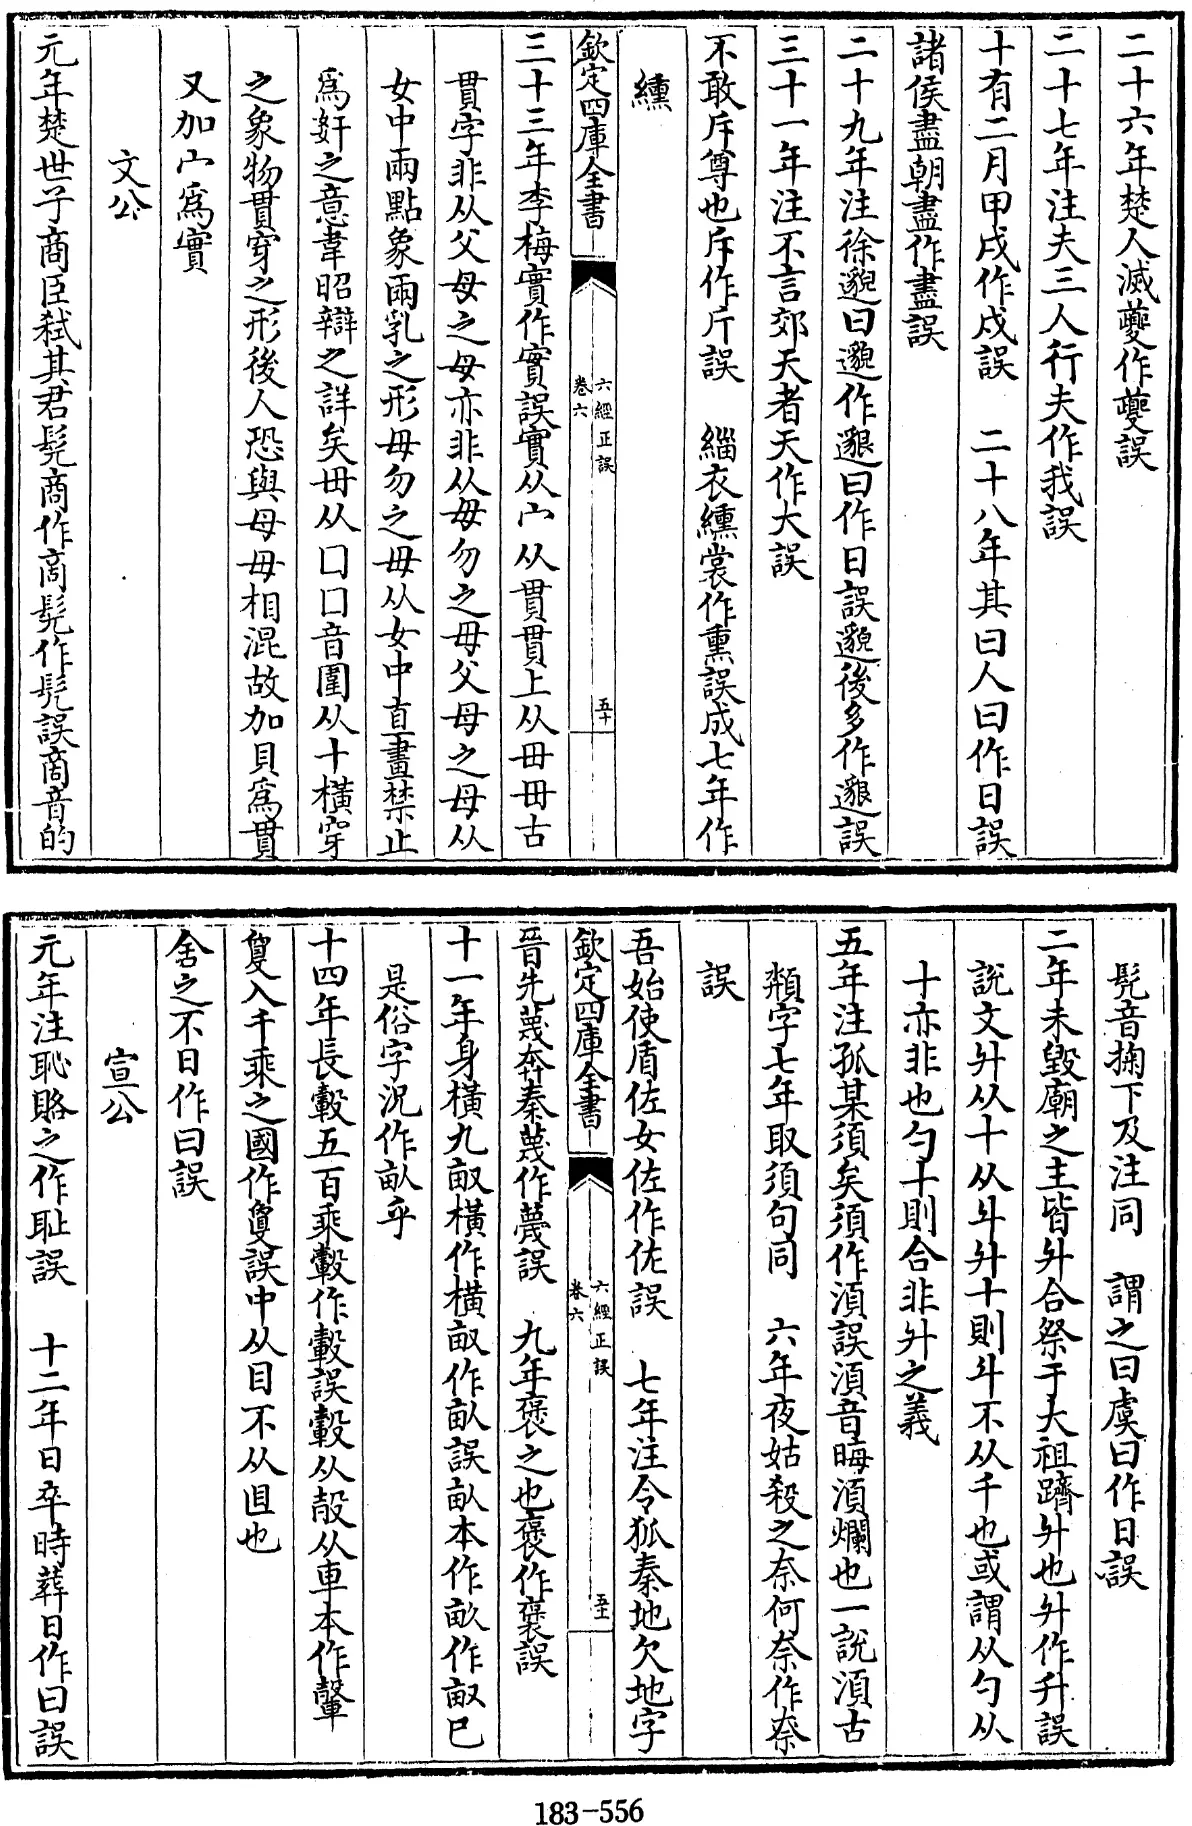 二十六年楚人滅夔作䕫誤
二十七年注夫三人行夫作我誤
十有二月甲戌作戍誤 二十八年其曰人曰作日誤
諸侯盡朝盡作盡誤
二十九年注徐邈曰邈作邈曰作日誤邈後多作邈誤
三十一年注不言郊天者天作大誤
不敢斥尊也斥作斤誤 緇衣纁裳作熏誤成七年作
纁
欽定四庫全書
六經正誤
卷六
五十
三十三年李梅實作實誤實从宀从貫貫上从毌毌古
貫字非从父母之母亦非从毋勿之毋父母之母从
女中兩點象兩乳之形毋勿之毋从女中直畫禁止
爲奸之意韋昭辯之詳矣毌从囗囗音圍从十橫穿
之象物貫穿之形後人恐與母毋相混故加貝爲貫
又加宀爲實
文公
元年楚世子商臣弒其君髡商作啇髡作髠誤啇音的
髡音掬下及注同 謂之曰虞曰作日誤
二年未毀廟之主皆升合祭于大祖躋升也升作升誤
說文升从十从斗升十則斗不从千也或謂从勺从
十亦非也勺十則合非升之義
五年注孤某須矣須作湏誤湏音晦湏爛也一說湏古
類字七年取須句同 六年夜姑殺之奈何奈作奈
誤
吾始使盾佐女佐作佐誤 七年注令狐秦地欠地字
欽定四庫全書
六經正誤
卷六
五十一
晉先蔑奔秦蔑作蔑誤 九年褒之也褒作褒誤
十一年身橫九畝橫作橫畝作畝誤畝本作畝作畝已
是俗字況作畝乎
十四年長轂五百乘轂作轂誤轂从㱿从車本作轂
敻入千乘之國作敻誤中从目不从𥃭也
舍之不日作曰誤
宣公
元年注恥賂之作耻誤 十二年日卒時葬日作曰誤
183-556